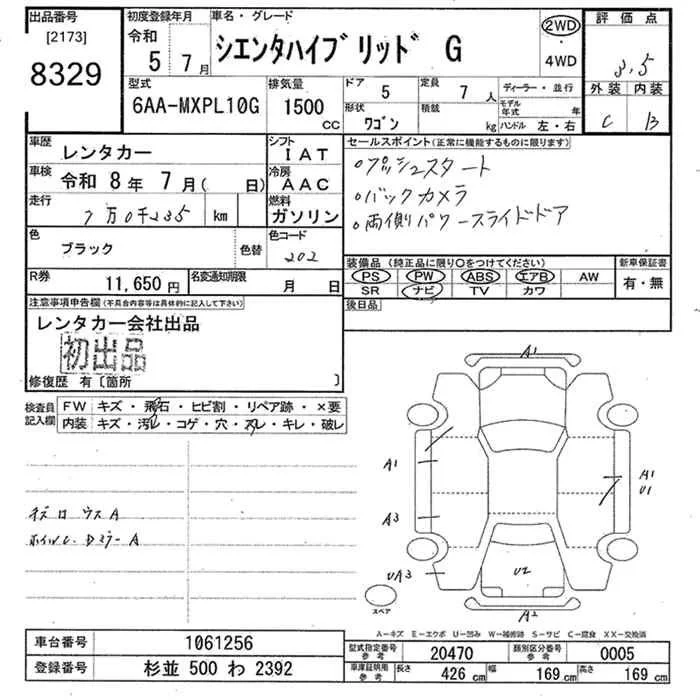 出品番号 初度登録年月 車名・グレード 評価点
[2173] 令和 5年 7月 シエンタハイブリッド G 2WD・4WD 3.5
8329
型式 排気量 ドア 5 定員 7人 ディーラー・並行 外装 内装
6AA-MXPL10G 1500cc 形状 ワゴン 積載 kg モデル年式 年 C B
ハンドル 左・右
車歴 レンタカー シフト IAT セールスポイント(正常に機能するものに限ります)
車検 令和 8年 7月( 日) 冷房 AAC ○プッシュスタート
走行 7万0千235 km 燃料 ガソリン ○バックカメラ
○両側パワースライドドア
色 ブラック 色替 色コード 202
装備品(純正品に限り○をつけてください) 新車保証書
R券 11,650円 名変通知期限 月 日 PS PW ABS エアB AW 有・無
SR ナビ TV カワ
注意事項申告欄(不具合内容等は具体的に記入して下さい) 後日品
レンタカー会社出品
初出品
修復歴 有〔箇所 〕
検査員記入欄 FW キズ・飛石・ヒビ割・リペア跡・×要
内装 キズ・汚レ・コゲ・穴・スレ・キレ・破レ
A1
A1
A1
U1
A3
UA3
U2
A2
スペア
A-キズ E-エクボ U-凹み W-補修跡 S-サビ C-腐食 XX-交換済
車台番号 1061256 型式指定番号 参考 20470 類別区分番号 参考 0005
登録番号 杉並 500 わ 2392 車庫証明用 参考 長さ 426cm 幅 169cm 高さ 169cm